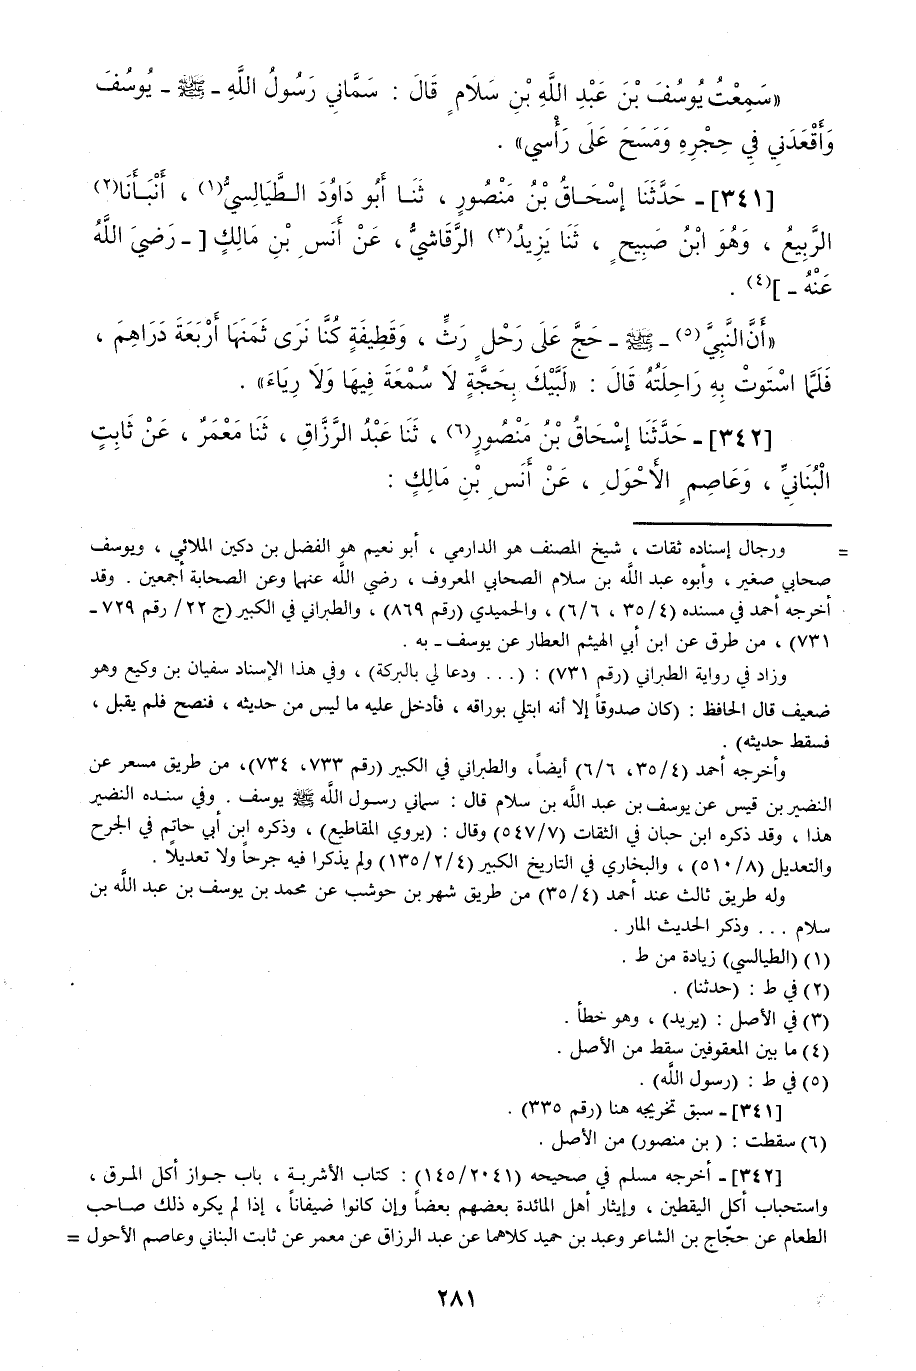 «سَمِعْتُ يُوسُفَ بْنَ عَبْدِ اللَّهِ بْنِ سَلَامٍ قَالَ : سَمَّاني رَسُولُ اللَّهِ ـ ﷺ ـ يُوسُفَ
وَأَقْعَدَنِي فِي حِجْرِهِ وَمَسَحَ عَلَى رَأْسي» .
[٣٤١] ـ حَدَّثَنَا إِسْحَاقُ بْنُ مَنْصُورٍ ، ثَنَا أَبُو دَاوُدَ الطَّيَالِسيُّ(١) ، أَنْبَأَنَا(٢)
الرَّبِيعُ ، وَهُوَ ابْنُ صَبِيحٍ ، ثَنَا يَزِيدُ(٣) الرَّقَاشيُّ ، عَنْ أَنَسِ بْنِ مَالِكٍ [ ـ رَضِيَ اللَّهُ
عَنْهُ ـ ](٤) .
«أَنَّ النَّبِيَّ(٥) ـ ﷺ ـ حَجَّ عَلَى رَحْلٍ رَثٍّ ، وَقَطِيفَةٍ كُنَّا نَرَى ثَمَنَهَا أَرْبَعَةَ دَرَاهِمَ ،
فَلَمَّا اسْتَوتْ بِهِ رَاحِلَتُهُ قَالَ : «لَبَّيْكَ بِحَجَّةٍ لَا سُمْعَةَ فِيهَا وَلَا رِيَاءَ» .
[٣٤٢] ـ حَدَّثَنَا إِسْحَاقُ بْنُ مَنْصُورٍ(٦) ، ثَنَا عَبْدُ الرَّزَّاقِ ، ثَنَا مَعْمَرٌ ، عَنْ ثَابِتٍ
الْبُنَانِيِّ ، وَعَاصِمٍ الأَحْوَلِ ، عَنْ أَنَسِ بْنِ مَالِكٍ :
= ورجال إسناده ثقات ، شيخ المصنف هو الدارمي ، أبو نعيم هو الفضل بن دكين الملائي ، ويوسف
صحابي صغير ، وأبوه عبد الله بن سلام الصحابي المعروف ، رضي الله عنهما وعن الصحابة أجمعين . وقد
أخرجه أحمد في مسنده (٣٥/٤ ، ٦/٦) ، والحميدي (رقم ٨٦٩) ، والطبراني في الكبير (ج ٢٢/ رقم ٧٢٩ ـ
٧٣١) ، من طرق عن ابن أبي الهيثم العطار عن يوسف ـ به .
وزاد في رواية الطبراني (رقم ٧٣١) : (... ودعا لي بالبركة) ، وفي هذا الإسناد سفيان بن وكيع وهو
ضعيف قال الحافظ : (كان صدوقاً إلا أنه ابتلي بوراقه ، فأدخل عليه ما ليس من حديثه ، فنصح فلم يقبل ،
فسقط حديثه) .
وأخرجه أحمد (٣٥/٤، ٦/٦) أيضاً، والطبراني في الكبير (رقم ٧٣٣، ٧٣٤)، من طريق مسعر عن
النضير بن قيس عن يوسف بن عبد الله بن سلام قال : سماني رسول الله ﷺ يوسف . وفي سنده النضير
هذا ، وقد ذكره ابن حبان في الثقات (٥٤٧/٧) وقال : (يروي المقاطيع) ، وذكره ابن أبي حاتم في الجرح
والتعديل (٥١٠/٨) ، والبخاري في التاريخ الكبير (١٣٥/٢/٤) ولم يذكرا فيه جرحاً ولا تعديلاً .
وله طريق ثالث عند أحمد (٣٥/٤) من طريق شهر بن حوشب عن محمد بن يوسف بن عبد الله بن
سلام ... وذكر الحديث المار .
(١) (الطيالسي) زيادة من ط .
(٢) في ط : (حدثنا) .
(٣) في الأصل : (يريد) ، وهو خطأ .
(٤) ما بين المعقوفين سقط من الأصل .
(٥) في ط : (رسول الله) .
[٣٤١] ـ سبق تخريجه هنا (رقم ٣٣٥) .
(٦) سقطت : ( بن منصور) من الأصل .
[٣٤٢] ـ أخرجه مسلم في صحيحه (١٤٥/٢٠٤١) : كتاب الأشربة ، باب جواز أكل المرق ،
واستحباب أكل اليقطين ، وإيثار أهل المائدة بعضهم بعضاً وإن كانوا ضيفاناً ، إذا لم يكره ذلك صاحب
الطعام عن حجّاج بن الشاعر وعبد بن حميد كلاهما عن عبد الرزاق عن معمر عن ثابت البناني وعاصم الأحول =
٢٨١